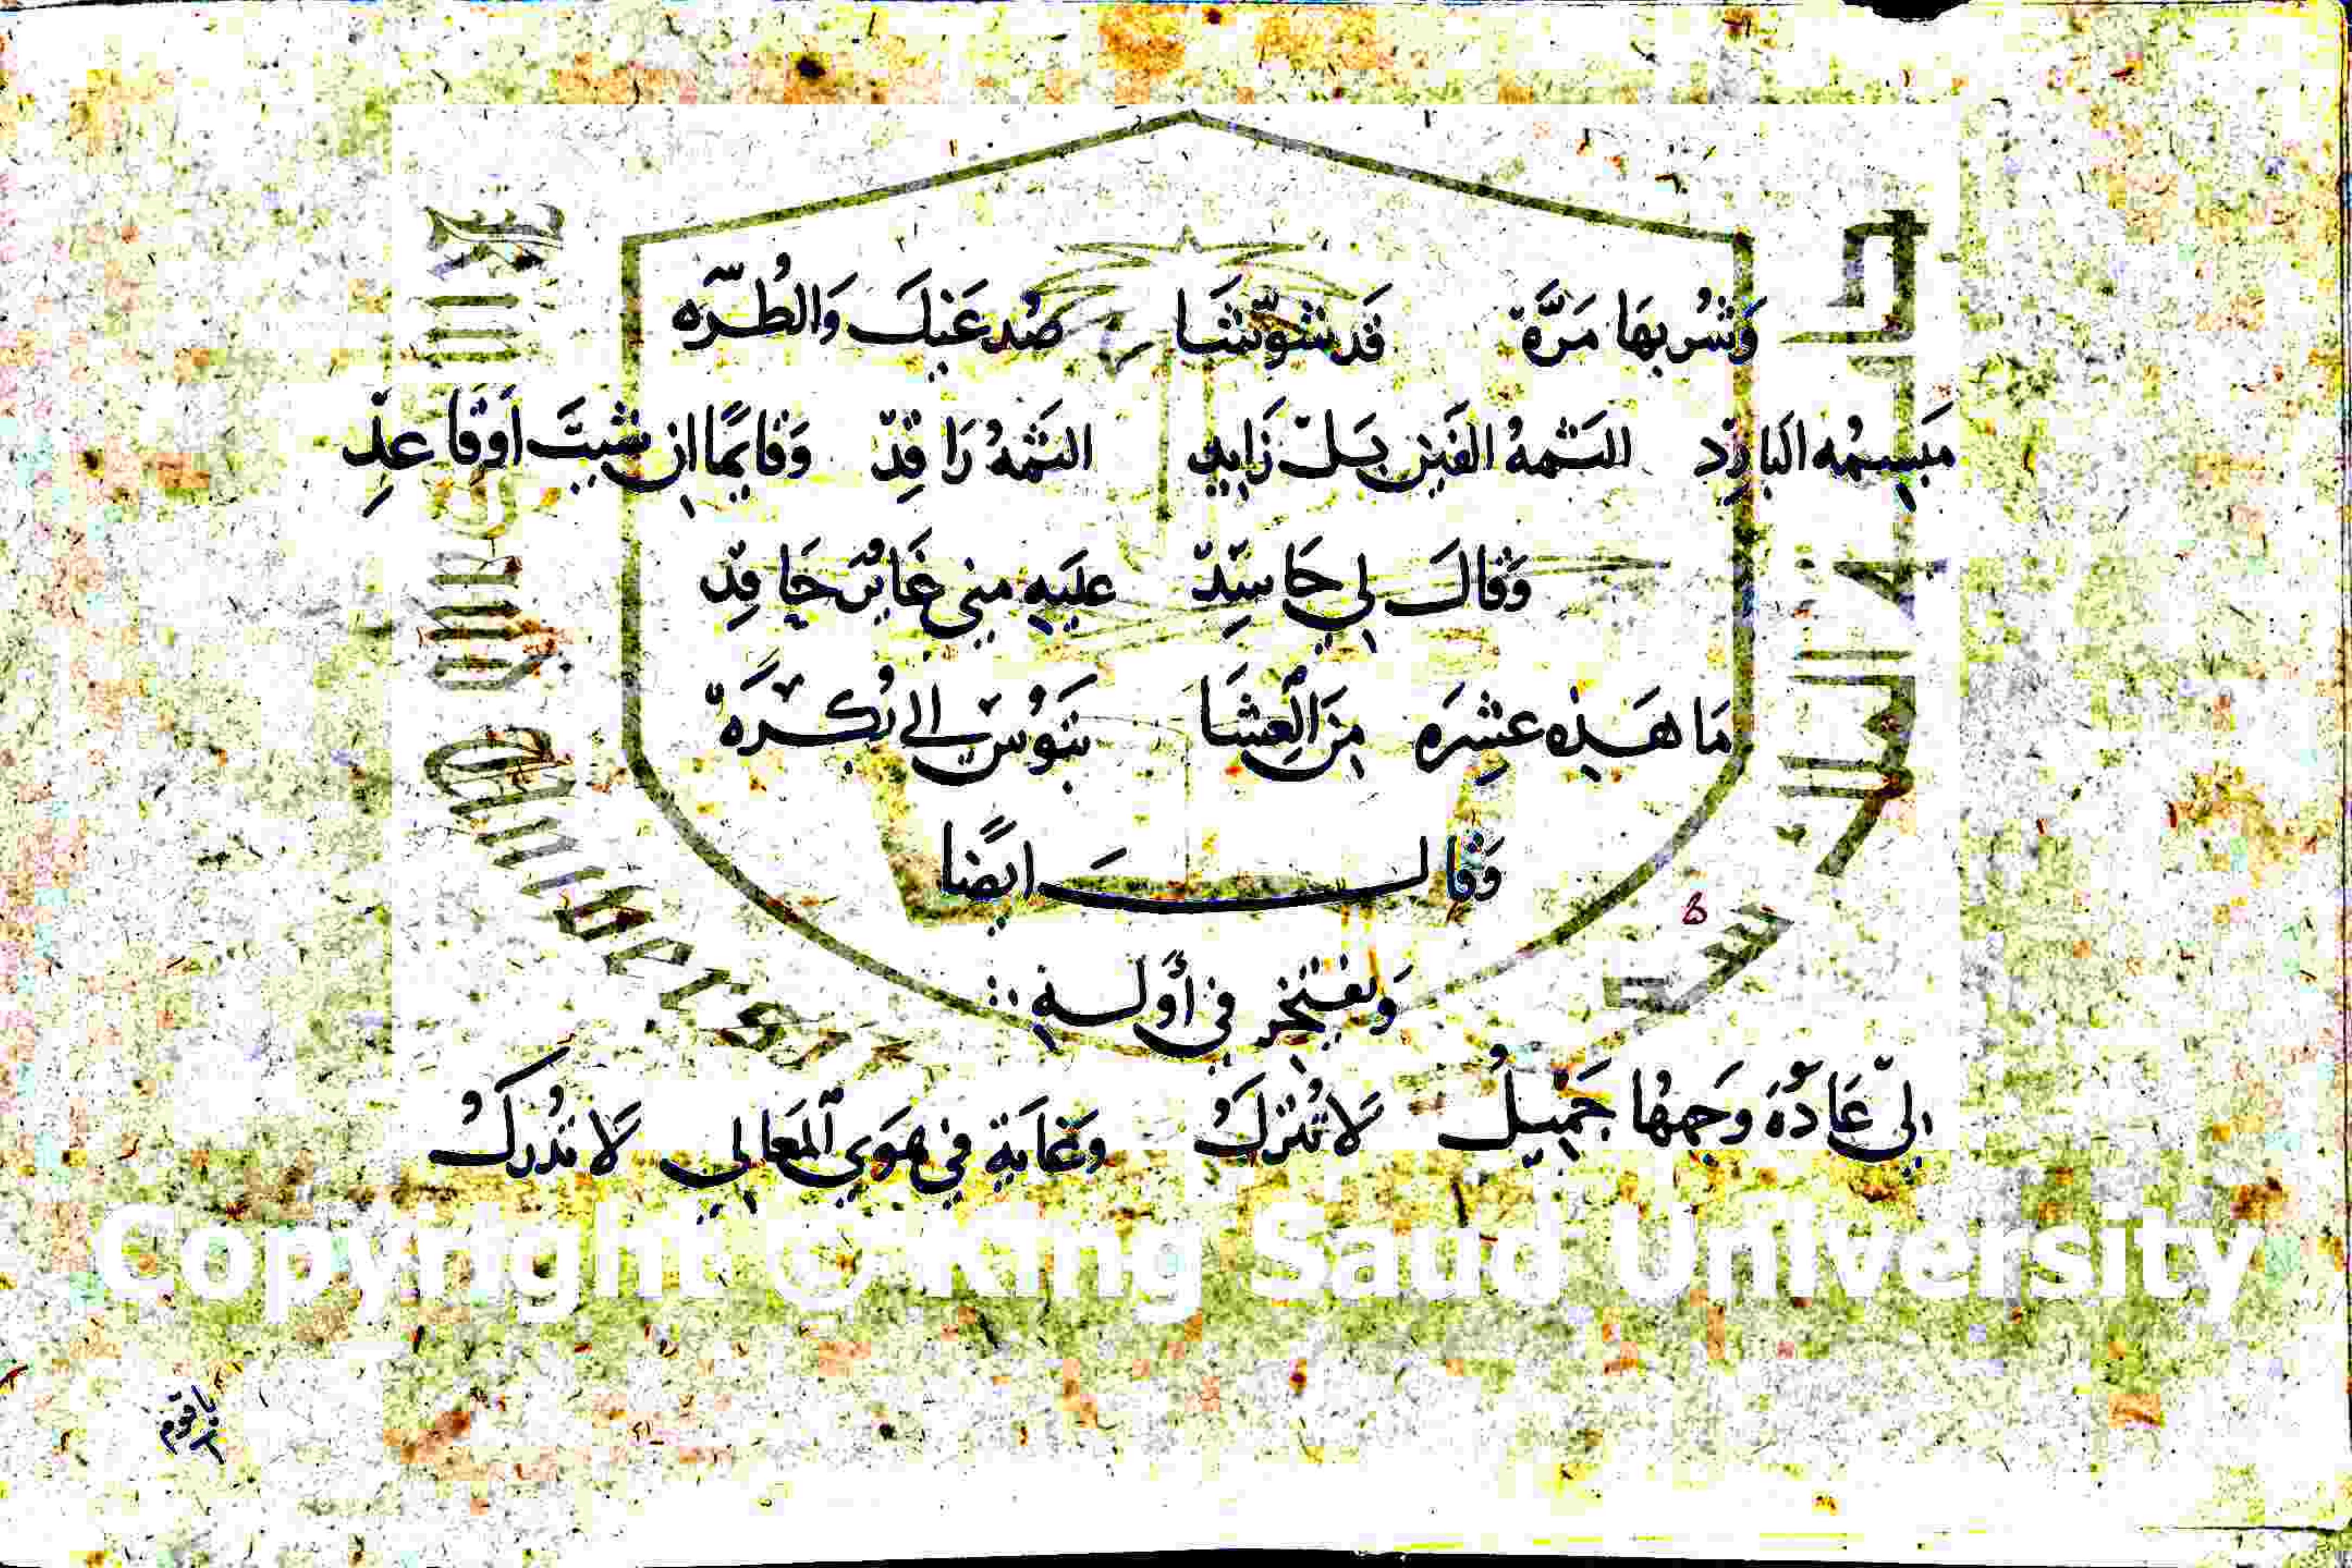 وَشُربهَا مَرَّة قَد شوّشَا صُدغَيكَ وَالطُرّه
مَبسِمُه البَارِد للثمهُ الفَين بَل زَايِد الثمهُ رَاقِد وَقايمًا ان شيتَ اَوقاعِد
وَقالَ لي حَاسِد عليَهِ مِني غَايرٌ حَاقِد
مَا هَذِه عشِره مِنَ العِشَا نبَوُس الي بُكرَة
وَقالَ ايضًا
وَيفتخر في أوله
لِي عَادَةٌ وَجهُهَا جَمِيلُ لَا تُترَكُ وغَايَة في هَوَي المَعالي لَا تدُركُ
Copyright © King Saud University
ياقوم